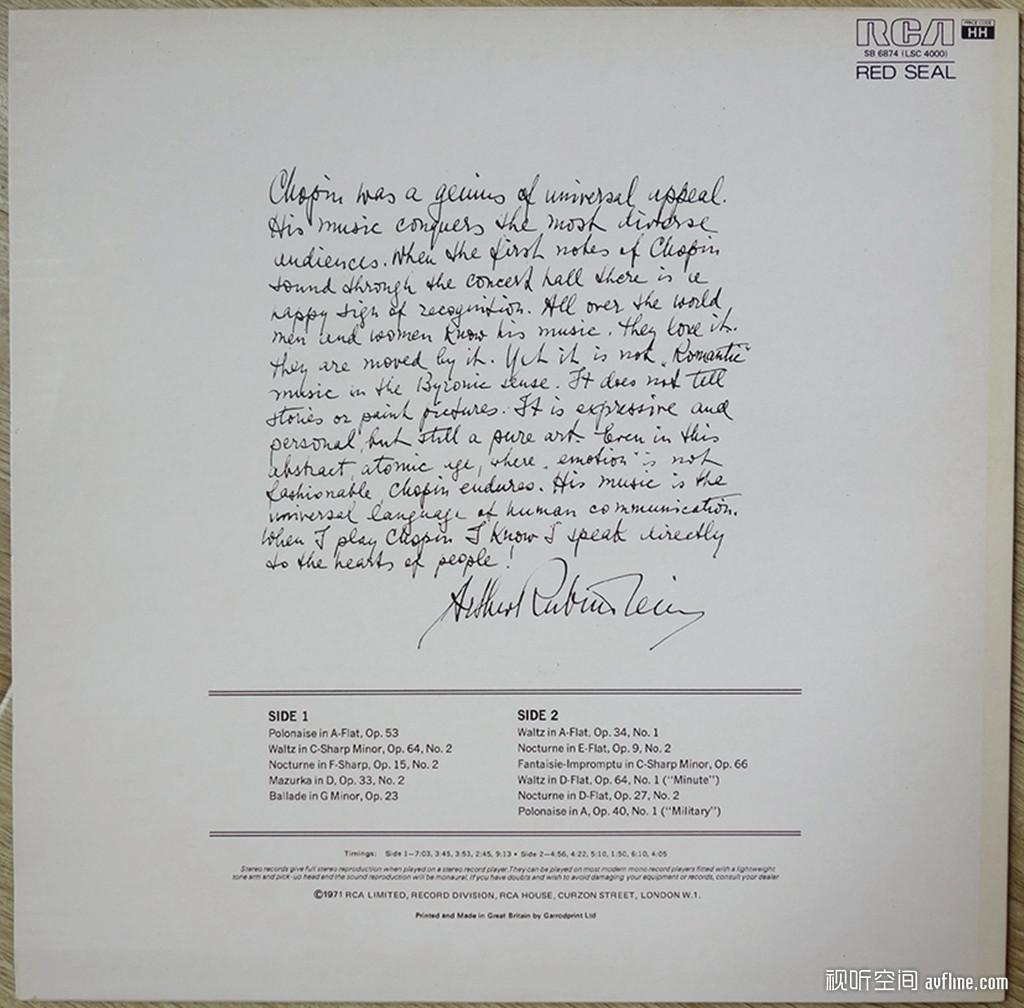 RCA
PRICE CODE
HH
SB 6874 (LSC 4000)
RED SEAL
Chopin was a genius of universal appeal.
His music conquers the most diverse
audiences. When the first notes of Chopin
sound through the concert hall there is a
happy sign of recognition. All over the world
men and women know his music. They love it.
They are moved by it. Yet it is not „Romantic"
music in the Byronic sense. It does not tell
stories or paint pictures. It is expressive and
personal, but still a pure art. Even in this
abstract, atomic age, where „emotion" is not
fashionable, Chopin endures. His music is the
universal language of human communication.
When I play Chopin I know I speak directly
to the hearts of people!
Arthur Rubinstein
SIDE 1
Polonaise in A-Flat, Op. 53
Waltz in C-Sharp Minor, Op. 64, No. 2
Nocturne in F-Sharp, Op. 15, No. 2
Mazurka in D, Op. 33, No. 2
Ballade in G Minor, Op. 23
SIDE 2
Waltz in A-Flat, Op. 34, No. 1
Nocturne in E-Flat, Op. 9, No. 2
Fantaisie-Impromptu in C-Sharp Minor, Op. 66
Waltz in D-Flat, Op. 64, No. 1 ("Minute")
Nocturne in D-Flat, Op. 27, No. 2
Polonaise in A, Op. 40, No. 1 ("Military")
Timings: Side 1—7:03, 3:45, 3:53, 2:45, 9:13 • Side 2—4:56, 4:22, 5:10, 1:50, 6:10, 4:05
Stereo records give full stereo reproduction when played on a stereo record player. They can be played on most modern mono record players fitted with a lightweight
tone arm and pick-up head and the sound reproduction will be monaural. If you have doubts and wish to avoid damaging your equipment or records, consult your dealer
©1971 RCA LIMITED, RECORD DIVISION, RCA HOUSE, CURZON STREET, LONDON W.1.
Printed and Made in Great Britain by Garrodprint Ltd
视听空间 avfline.com